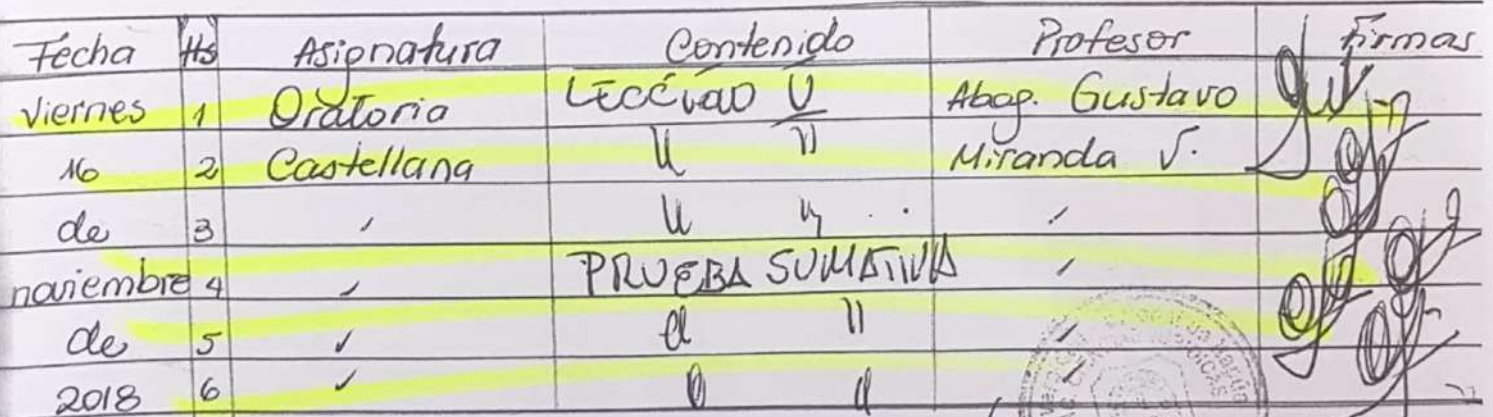 Fecha Hs Asignatura Contenido Profesor Firmas
Viernes 1 Oratoria Lección V Abog. Gustavo
16 2 Castellana " " Miranda V.
de 3 " "
noviembre 4 PRUEBA SUMATIVA
de 5 " "
2018 6 " "